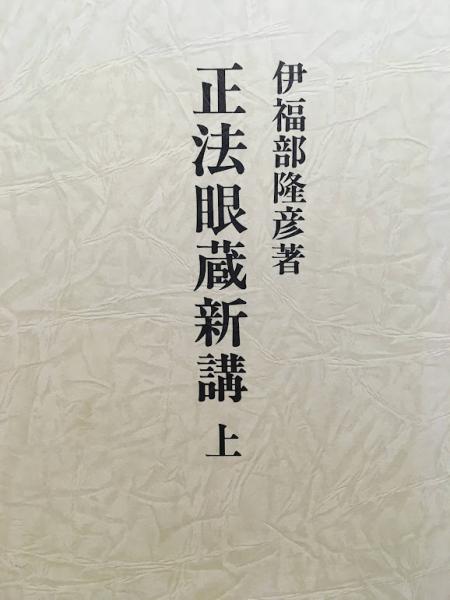 伊福部隆彦著
正法眼蔵新講 上